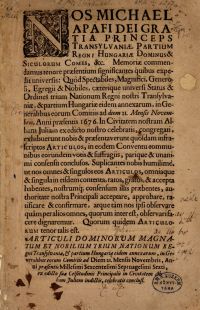 NOS MICHAEL
APAFI DEI GRA-
TIA PRINCEPS
TRANSYLVANIÆ PARTIUM
REGNI HUNGARIÆ DOMINUS &
SICULORUM COMES, &c. Memoriæ commen-
damus tenore præsentium significantes quibus expe-
dit universis: Quod Spectabiles, Magnifici, Genero-
si, Egregii & Nobiles, cæterique universi Status &
Ordines trium Nationum Regni nostri Transylva-
niæ & partium Hungariæ eidem annexarum. in Ge-
neralibus eorum Comitiis ad diem 21. Mensis Novemb-
ris, Anni præsentis 1676. in Civitatem nostram Al-
bam Juliam ex edicto nostro celebratis, congregati,
exhibuerunt nobis & præsentaverunt quosdam infra-
scriptos ARTICULOS, in eodem Conventu commu-
nibus eorundem votis & suffragiis, parique & unani-
mi consensu conclusos. Supplicantes nobis humillimè,
ut nos omnes & singulos eos ARTICULOS, omniaque
& singula in eisdem contenta, ratos, gratos, & accepta
habentes, nostrumq; consensum illis præbentes, au-
thoritate nostra Principali acceptare, approbare, ra-
tificare & confirmare, atque tam nos ipsi observare
quàm per alios omnes, quorum interest, observari fa-
cere dignaremur. Quorum quidem ARTICULO-
RUM tenor talis est.
ARTICULI DOMINORUM MAGNA-
TUM ET NOBILIUM TRIUM NATIONUM RE-
gni Transylvaniæ, & partium Hungariæ eidem annexarum, in Ge-
neralibus eorum Comitiis ad Diem 21. Mensis Novembris, An-
ni præsentis Millesimi Sexcentesimi Septuagesimi Sexti,
ex edicto suæ Celsitudinis Principalis in Civitatem Al-
bam Juliam indictis, celebrati conclusi.